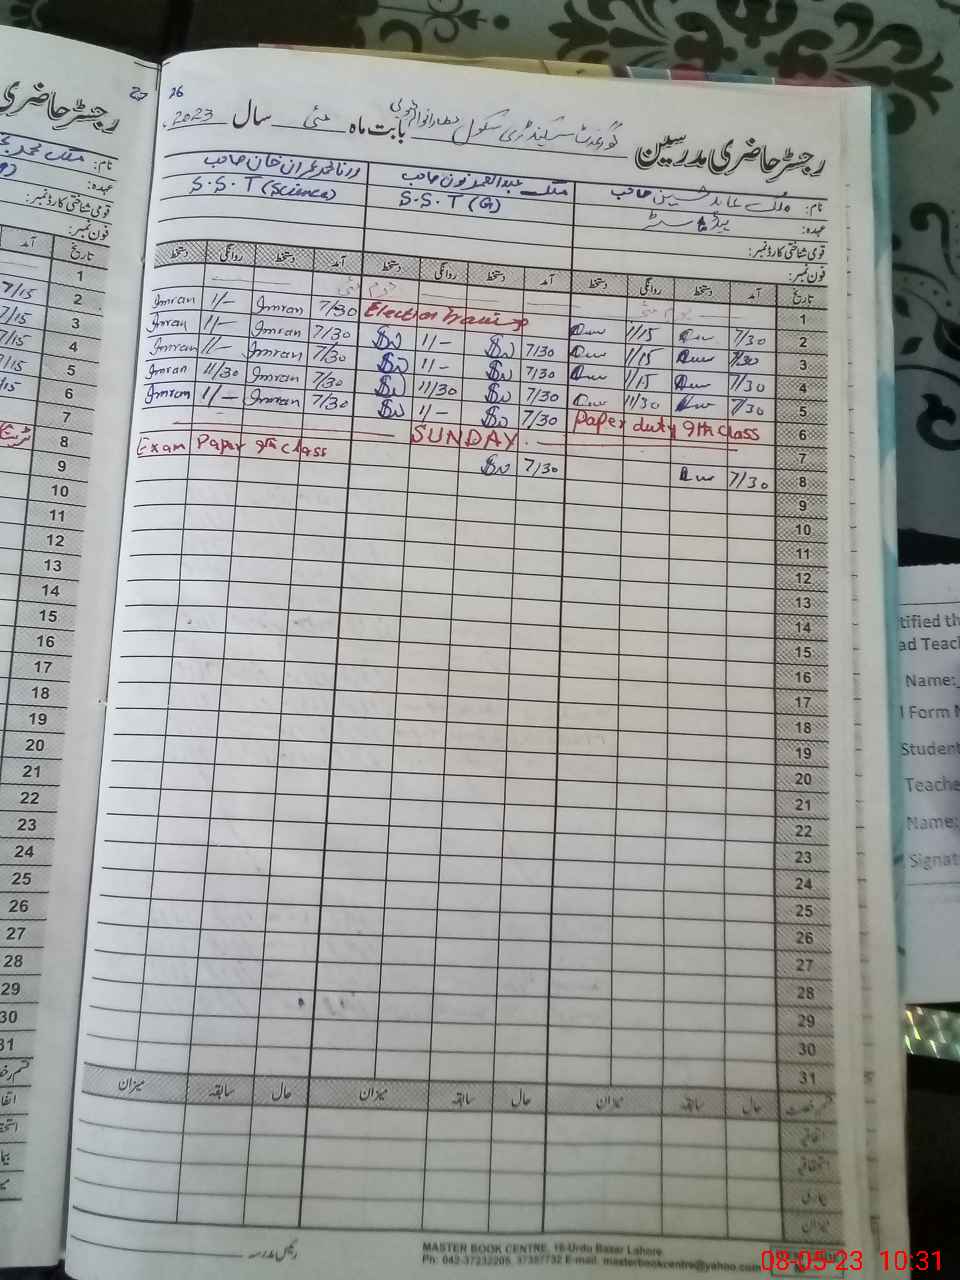 26
رجسٹر حاضری مدرسین گورنمنٹ سیکنڈری سکول بابت ماہ مئی سال 2023
نام: ملک عابد حسین صاحب
ملک عبدالعزیز نون صاحب
رانا محمد عمران خان صاحب
عہدہ: ہیڈ ماسٹر
S.S.T (G)
S.S.T (Science)
قومی شناختی کارڈ نمبر:
فون نمبر:
تاریخ آمد دستخط روانگی دستخط آمد دستخط روانگی دستخط آمد دستخط روانگی دستخط
1
2 7/30 11/15 Election Training 7/30 Imran 11/- Imran
3 7/30 11/15 7/30 11/- 7/30 Imran 11/- Imran
4 7/30 11/15 7/30 11/- 7/30 Imran 11/- Imran
5 7/30 11/30 7/30 11/30 7/30 Imran 11/30 Imran
6 Paper duty 9th class 7/30 11/- 7/30 Imran 11/- Imran
7 SUNDAY
8 7/30 7/30 Exam Paper 9th class
9
10
11
12
13
14
15
16
17
18
19
20
21
22
23
24
25
26
27
28
29
30
31
قسم رخصت حال سابقہ میزان حال سابقہ میزان حال سابقہ میزان
اتفاقیہ
استحقاقیہ
بیماری
میزان
رئیس مدرسہ
MASTER BOOK CENTRE, 16-Urdu Bazar Lahore
Ph: 042-37232205, 37357732 E-mail: masterbookcentre@yahoo.com
رجسٹر حاضری
نام:
عہدہ:
قومی شناختی کارڈ نمبر:
فون نمبر:
تاریخ آمد
1
2
3 7/15
4 7/15
5 7/15
6 7/15
7
8
9
10
11
12
13
14
15
16
17
18
19
20
21
22
23
24
25
26
27
28
29
30
31
tified th
ad Teach
Name:
l Form N
Student
Teache
Name:
Signat
08-05-23 10:31